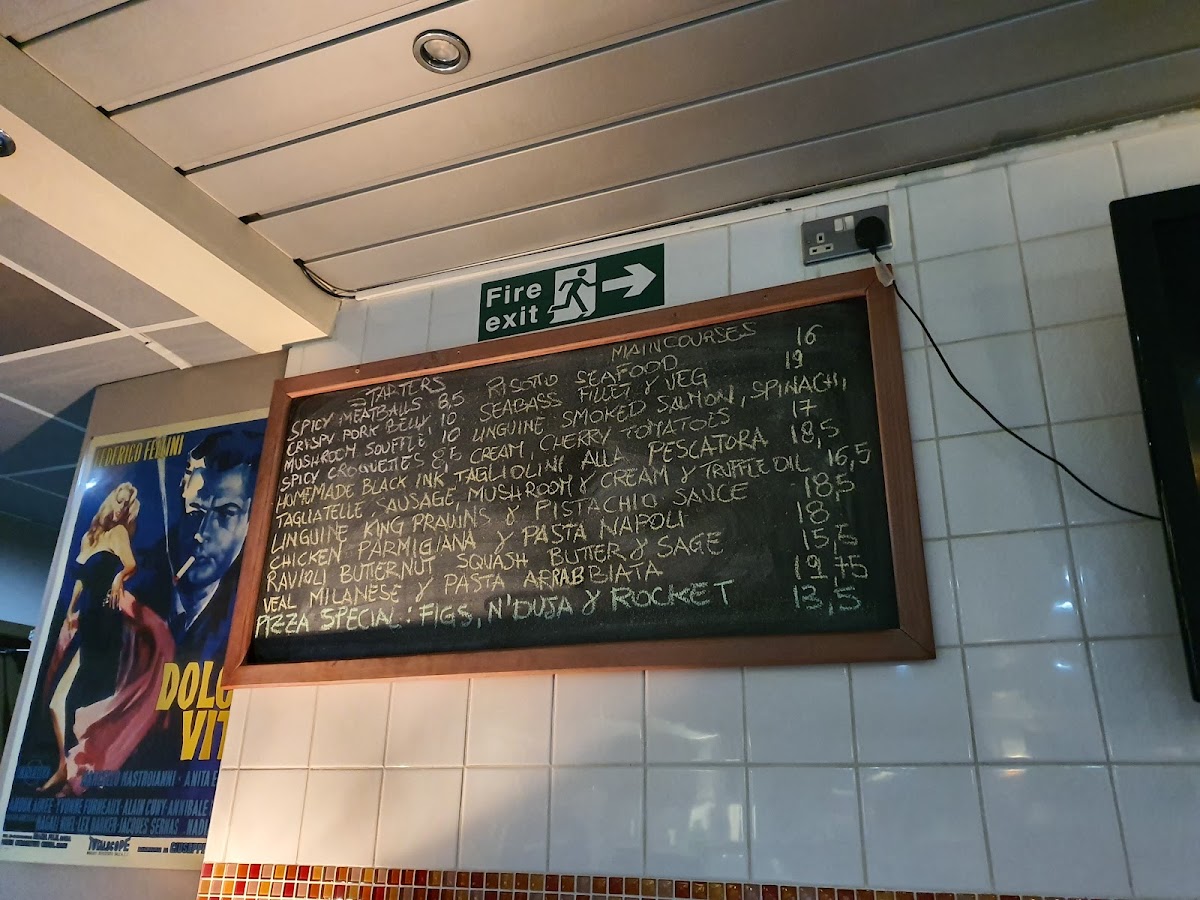 Fire
exit
STARTERS
SPICY MEATBALLS 8,5
CRISPY PORK BELLY 10
MUSHROOM SOUFFLE 10
SPICY CROQUETTES 8,5
MAIN COURSES
RISOTTO SEAFOOD 16
SEABASS FILLET & VEG 19
LINGUINE SMOKED SALMON, SPINACH,
CREAM, CHERRY TOMATOES 17
HOMEMADE BLACK INK TAGLIOLINI ALLA PESCATORA 18,5
TAGLIATELLE, SAUSAGE, MUSHROOM & CREAM & TRUFFLE OIL 16,5
LINGUINE KING PRAWNS & PISTACHIO SAUCE 18,5
CHICKEN PARMIGIANA & PASTA NAPOLI 18
RAVIOLI BUTTERNUT SQUASH BUTTER & SAGE 15,5
VEAL MILANESE & PASTA ARRABBIATA 19,75
PIZZA SPECIAL: FIGS, N'DUJA & ROCKET 13,5
FEDERICO FELLINI
DOLC
VIT
MASTROIANNI · ANITA E
YVONNE FURNEAUX · ALAIN CUNY · ANNIBALE
MAGALI NOEL · LEX BARKER · JACQUES SERNAS · NADI
TOTALSCOPE
GIUSEPPE